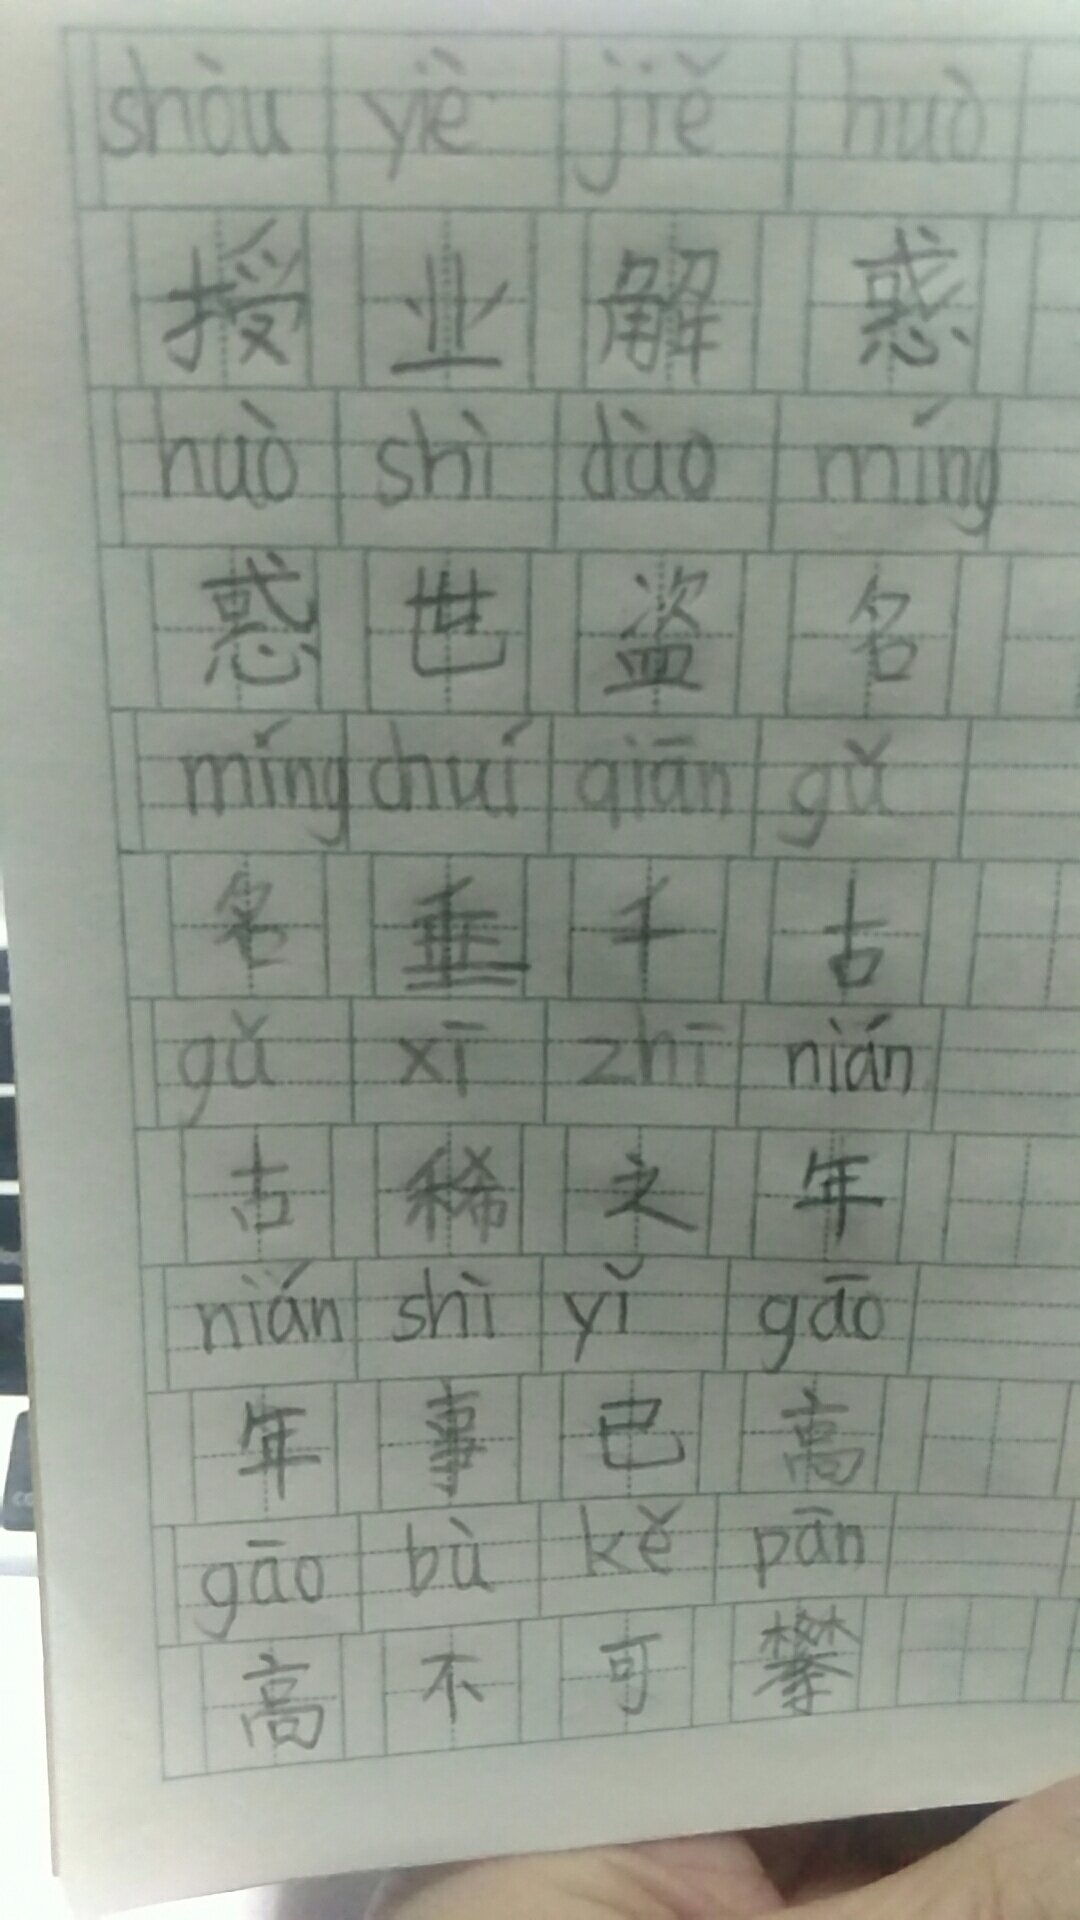 shòu yè jiě huò
授业解惑
huò shì dào míng
惑世盗名
míng chuí qiān gǔ
名垂千古
gǔ xī zhī nián
古稀之年
nián shì yǐ gāo
年事已高
gāo bù kě pān
高不可攀